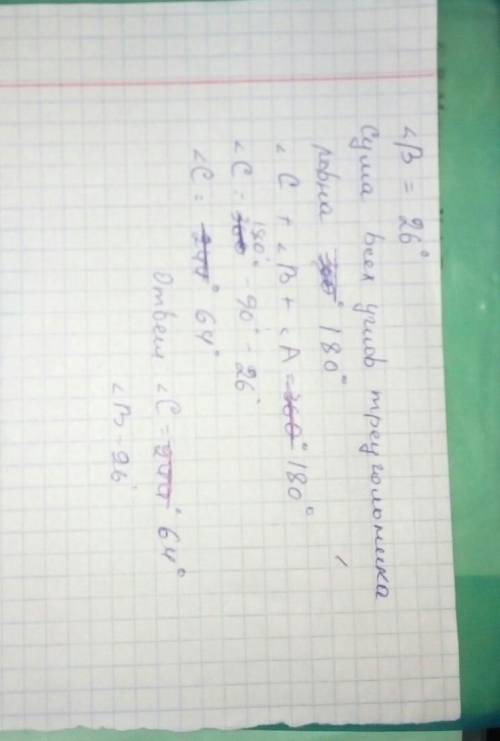 ∠B = 26°
Сума всех углов треугольника
равна 360° 180°
∠C + ∠B + ∠A = 360° 180°
∠C = 360 180° - 90° - 26°
∠C = 244° 64°
Ответ ∠C = 244° 64°
∠B - 26°